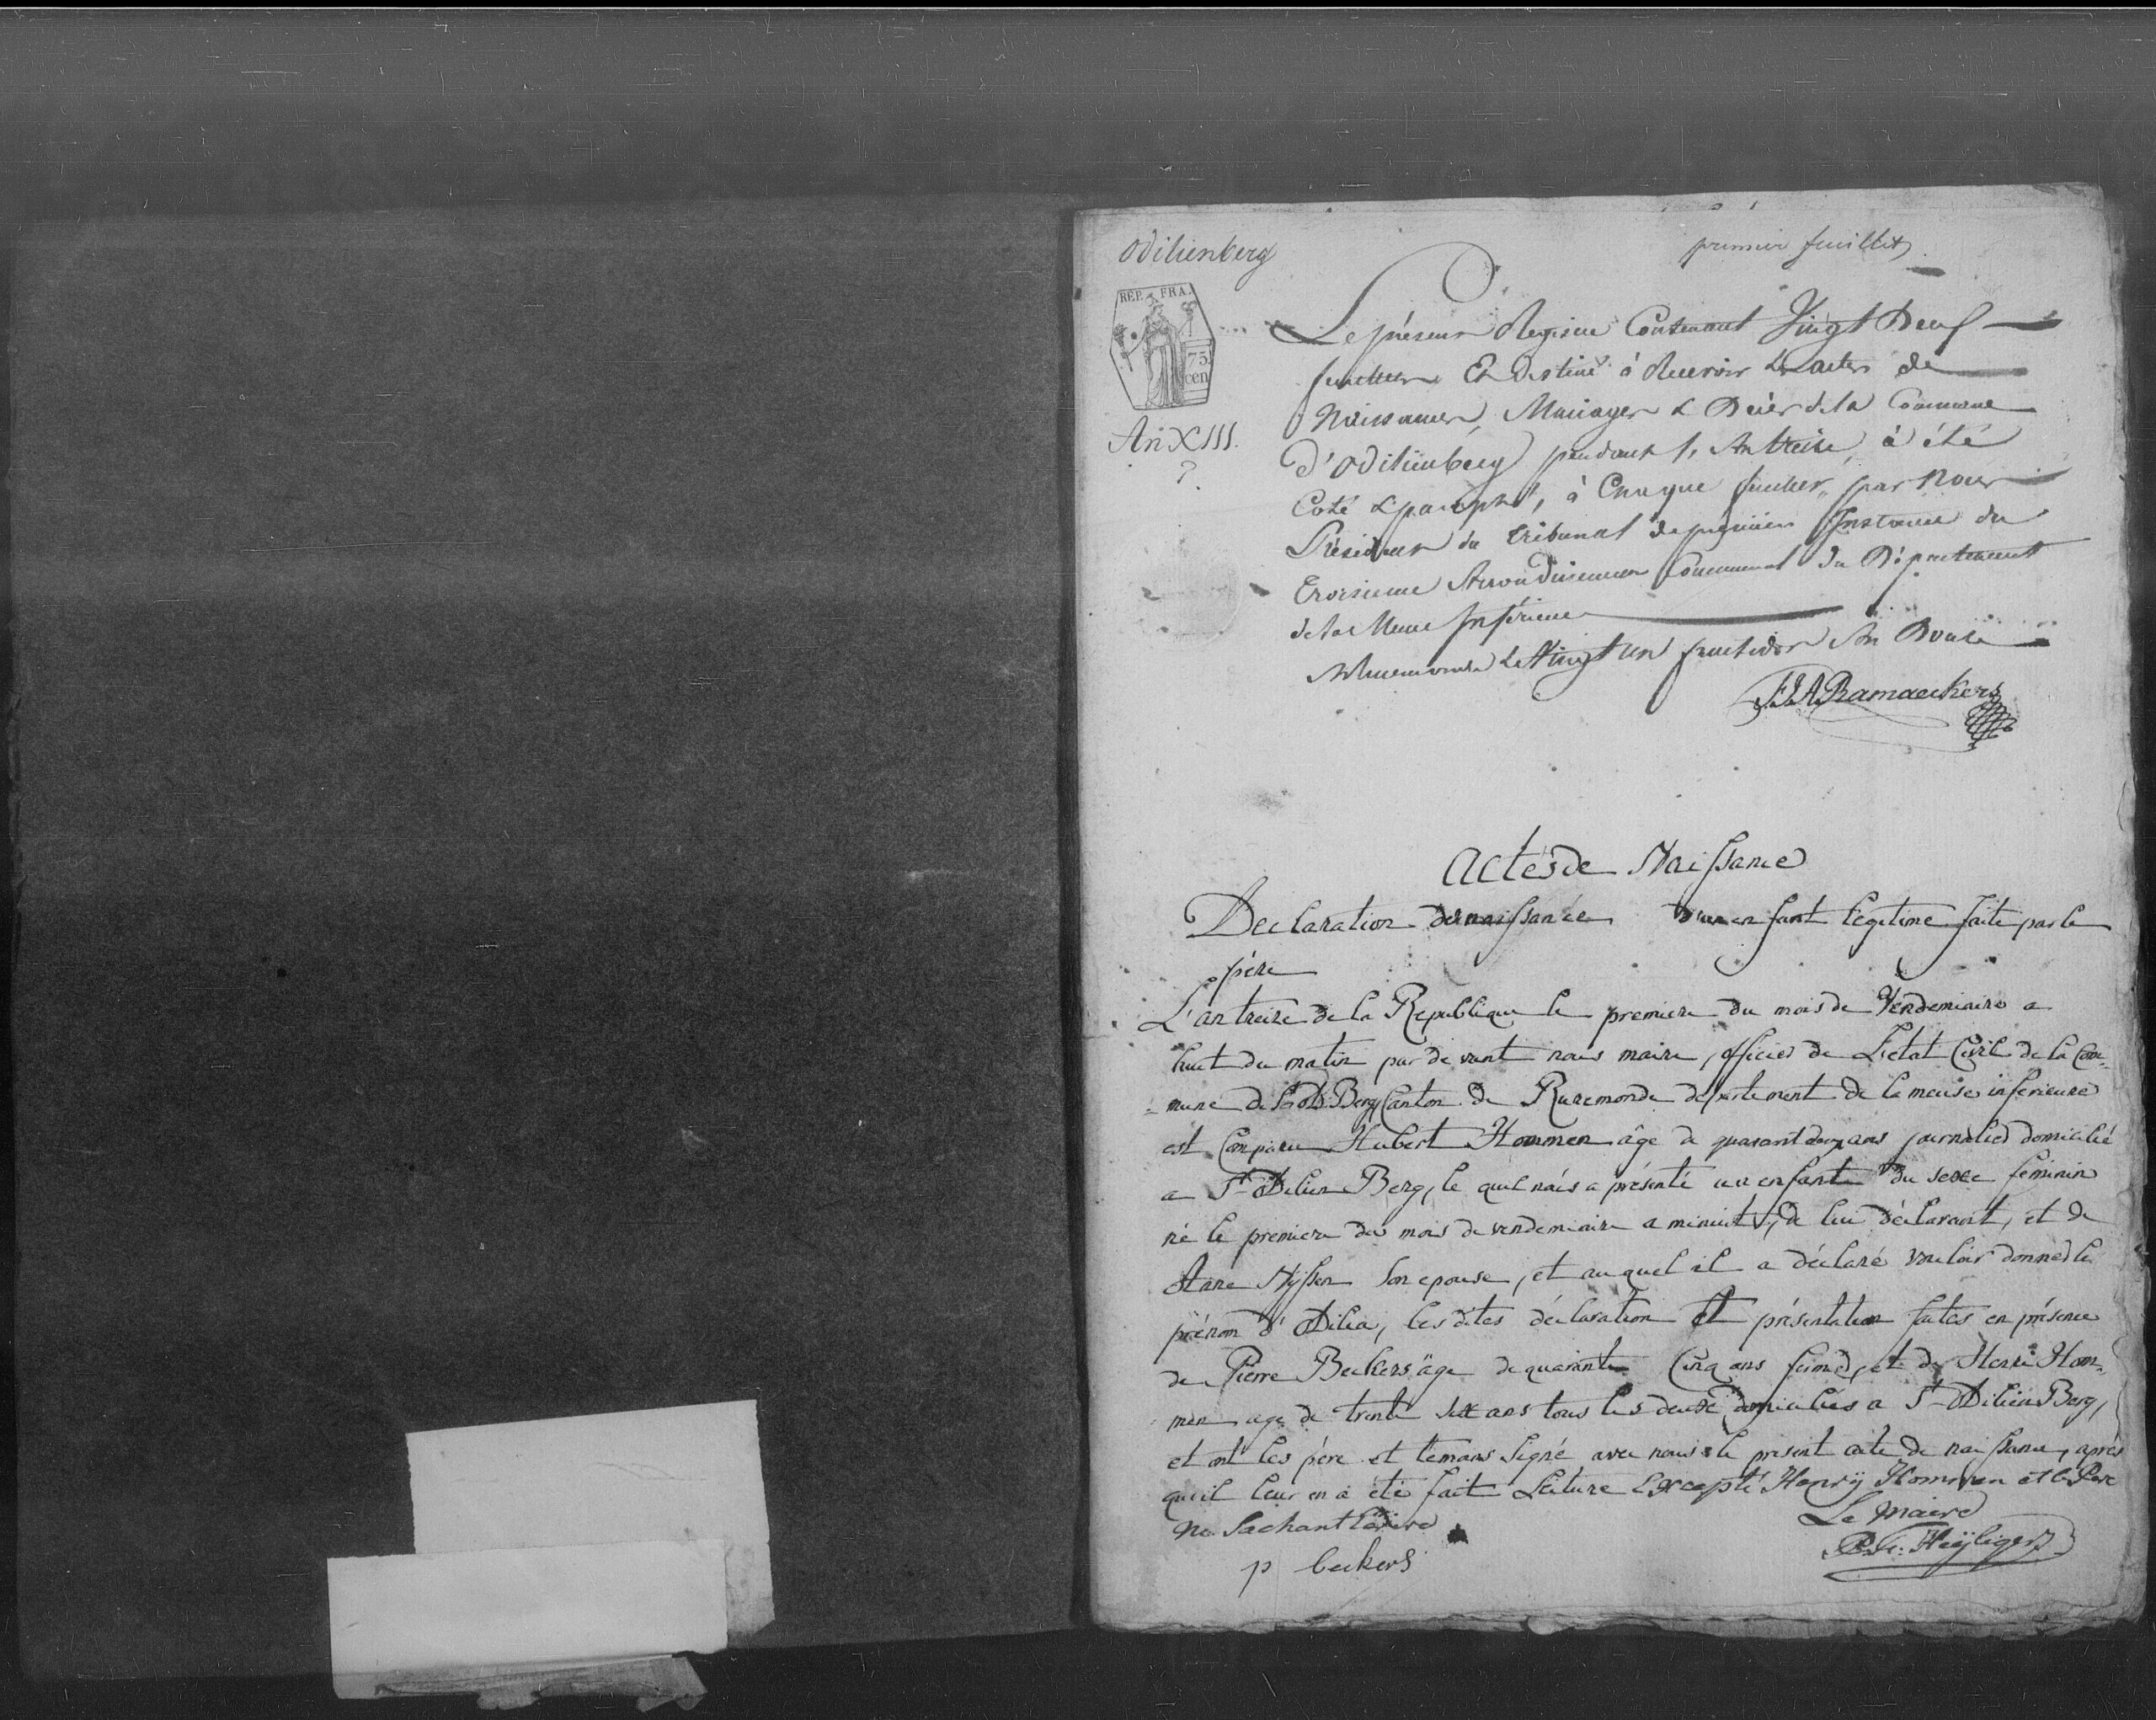 Odilienberg
premier feuillet
REP. FRA.
75.
cen
An XIII.
Le présent Registre Contenant Vingt Deux
feuillets Et destiné à Recevoir les actes de
Naissances, Mariages & Décès de la Commune
d'Odilienberg pendant l'An treize, à été
Coté & paraphé, à Chaque feuillet, par Nous
Président du tribunal de premiere Instance du
troisieme Arrondissement Communal du Département
de la Meuse Inférieure
A Ruremonde le Vingt un fructidor An Douze
Ramaeckers
Actes de Naissance
Declaration de naissance d'un enfant légitime faite par le
père
L'an treize de la Republique le premiere du mois de Vendemiaire a
huit du matin par de vant nous maire, officier de L'etat Civil de la Com-
-mune de Berg Canton de Ruremonde departement de la meuse inferieure
est Comparu Hubert Hommen âge de quarant deux ans journalier domicilié
a St Odilien Berg, le quel nous a présenté un enfant du sexe feminin
né le premiere du mois de vendemiaire a minuit, de lui déclarant, et de
Anne Nÿssen son epouse, et auquel il a déclaré vouloir donner le
prénom d'Odilia, les dites déclaration et présentation faites en présence
de Pierre Beckers âge de quarante Cinq ans fermier, et de Henri Hom-
men age de trente six ans tous les deux domiciliés a St Odilien Berg,
et ont les père et temoins signé avec nous le present acte de naissance, après
qu'il leur en a été fait Lecture Excepté Henrÿ Hommen et le Pere
ne Sachant Ecrire
Le maire
p beckers
Heÿligers